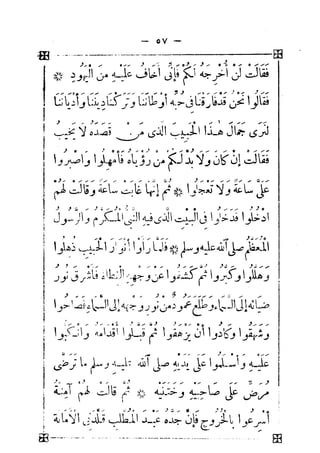 — ٥٧ —
فَقَالَتْ لَنْ أُخْرِجَهُ لَكُمْ فَإِنِّي أَخَافُ عَلَيْهِ مِنَ الْيَهُودِ ❊
فَقَالُوا نَحْنُ قَدْ فَارَقْنَا فِي حُبِّهِ أَوْطَانَنَا وَتَرَكْنَا دِيَنَنَا وَأَدْيَانَنَا
لِنَرَى جَمَالَ هٰذَا الْحَبِيبِ الَّذِي مَنْ قَصَدَهُ لَا يَخِيبُ
فَقَالَتْ إِنْ كَانَ وَلَا بُدَّ لَكُمْ مِنْ رُؤْيَاهُ فَأَمْهِلُوا وَاصْبِرُوا
عَلَيَّ سَاعَةً وَلَا تَعْجَلُوا ❊ ثُمَّ إِنَّهَا غَابَتْ سَاعَةً وَقَالَتْ لَهُمُ
ادْخُلُوا فَدَخَلُوا فِي الْبَيْتِ الَّذِي فِيهِ النَّبِيُّ الْمُكَرَّمُ وَالرَّسُولُ
الْمُعَظَّمُ صلى اللّٰه عليه وسلم ❊ فَلَمَّا رَأَوْا أَنْوَارَ الْحَبِيبِ ذُهِلُوا
وَهَلَّلُوا وَكَبَّرُوا ثُمَّ كَشَفُوا عَنْ وَجْهِهِ الْغِطَاءَ فَأَشْرَقَ نُورُ
ضِيَائِهِ إِلَى السَّمَاءِ وَطَلَعَ عَمُودٌ مِنْ نُورِ وَجْهِهِ إِلَى السَّمَاءِ فَصَاحُوا
وَشَهَقُوا وَكَادُوا أَنْ يَزْهَقُوا ثُمَّ قَبَّلُوا أَقْدَامَهُ وَانْكَبُّوا
عَلَيْهِ وَأَسْلَمُوا عَلَى يَدَيْهِ صلى اللّٰه عليه وسلم مَا تَرَضَّى
مُرَضٍّ عَلَى صَاحِبَيْهِ وَخَتَنَيْهِ ❊ ثُمَّ قَالَتْ لَهُمْ آمِنَةُ
أَسْرِعُوا بِالْخُرُوجِ فَإِنَّ جَدَّهُ عَبْدَ الْمُطَّلِبِ قَلَّدَنِي الْأَمَانَةَ